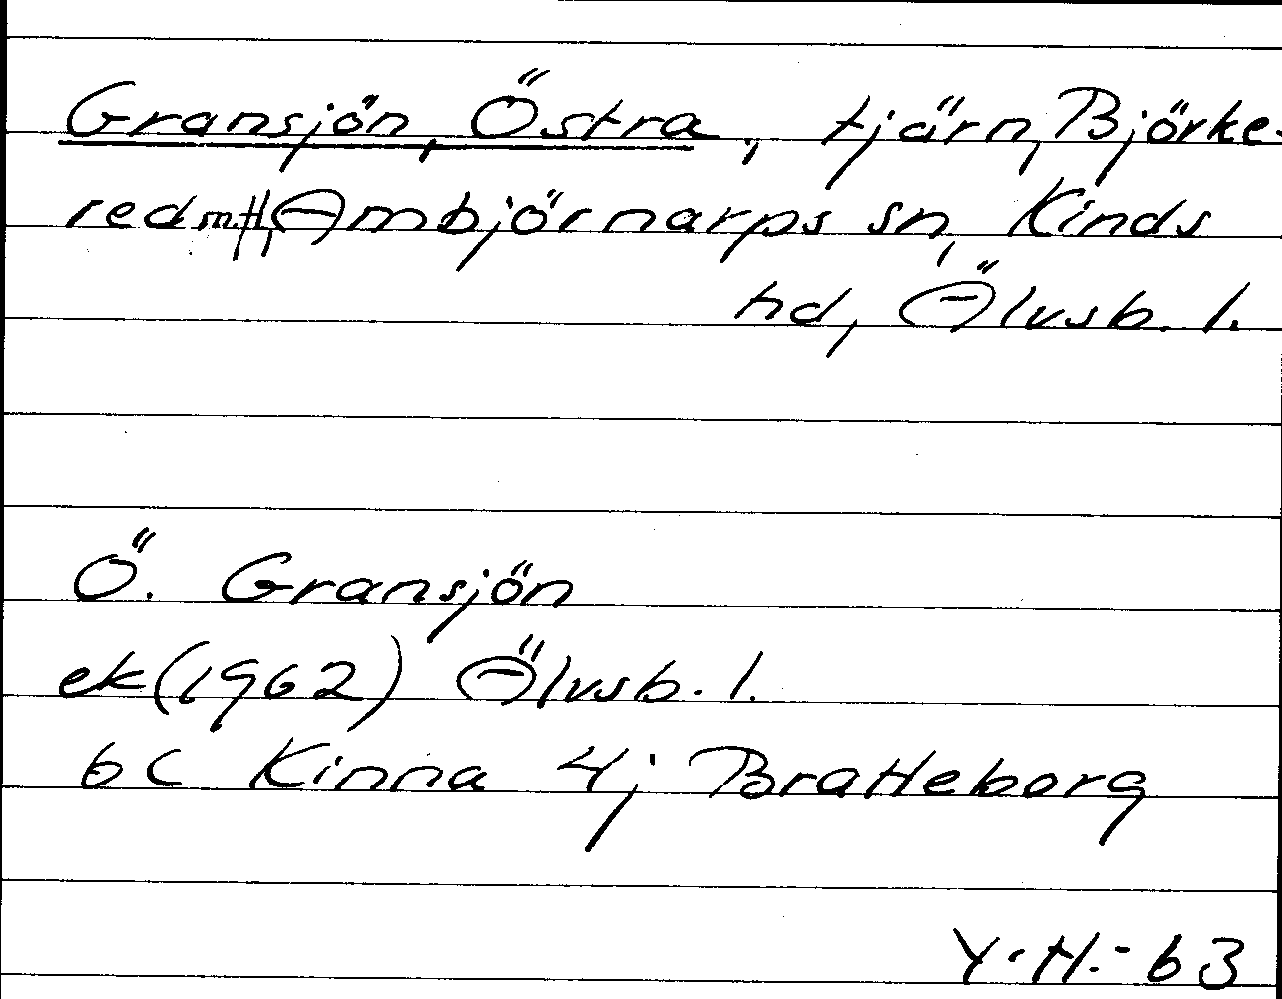 Gransjön, Östra, tjärn, Björke-
red m.fl., Ambjörnarps sn, Kinds
hd, Älvsb. l.
Ö. Gransjön
ek (1962) Älvsb. l.
6C Kinna 4j Bratteborg
Y.H.-63